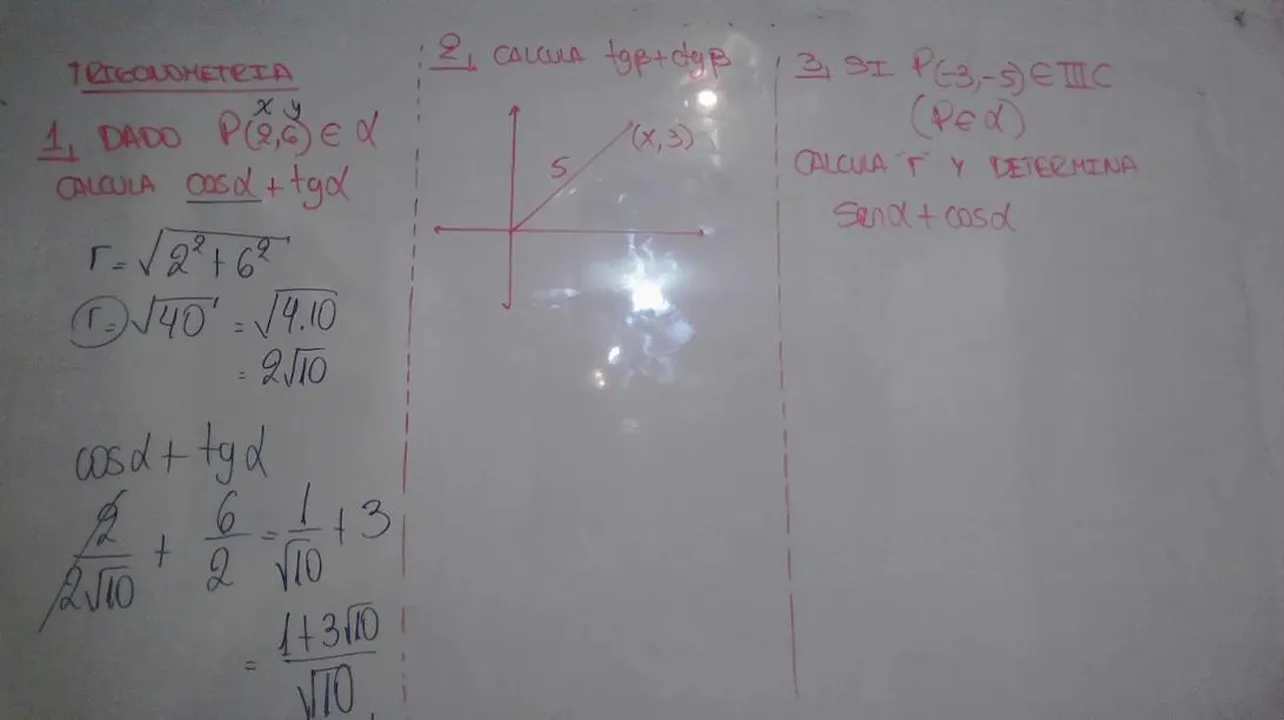 TRIGONOMETRIA
x y
1, DADO P(2,6) ∈ α
CALCULA cosα + tgα
r = √2² + 6²
r = √40 = √4.10
= 2√10
cosα + tgα
2/2√10 + 6/2 = 1/√10 + 3
= 1+3√10/√10
2, CALCULA tgβ+ctgβ
(x,3)
5
3, SI P(-3,-5) ∈ IIIC
(P∈α)
CALCULA "r" Y DETERMINA
senα + cosα